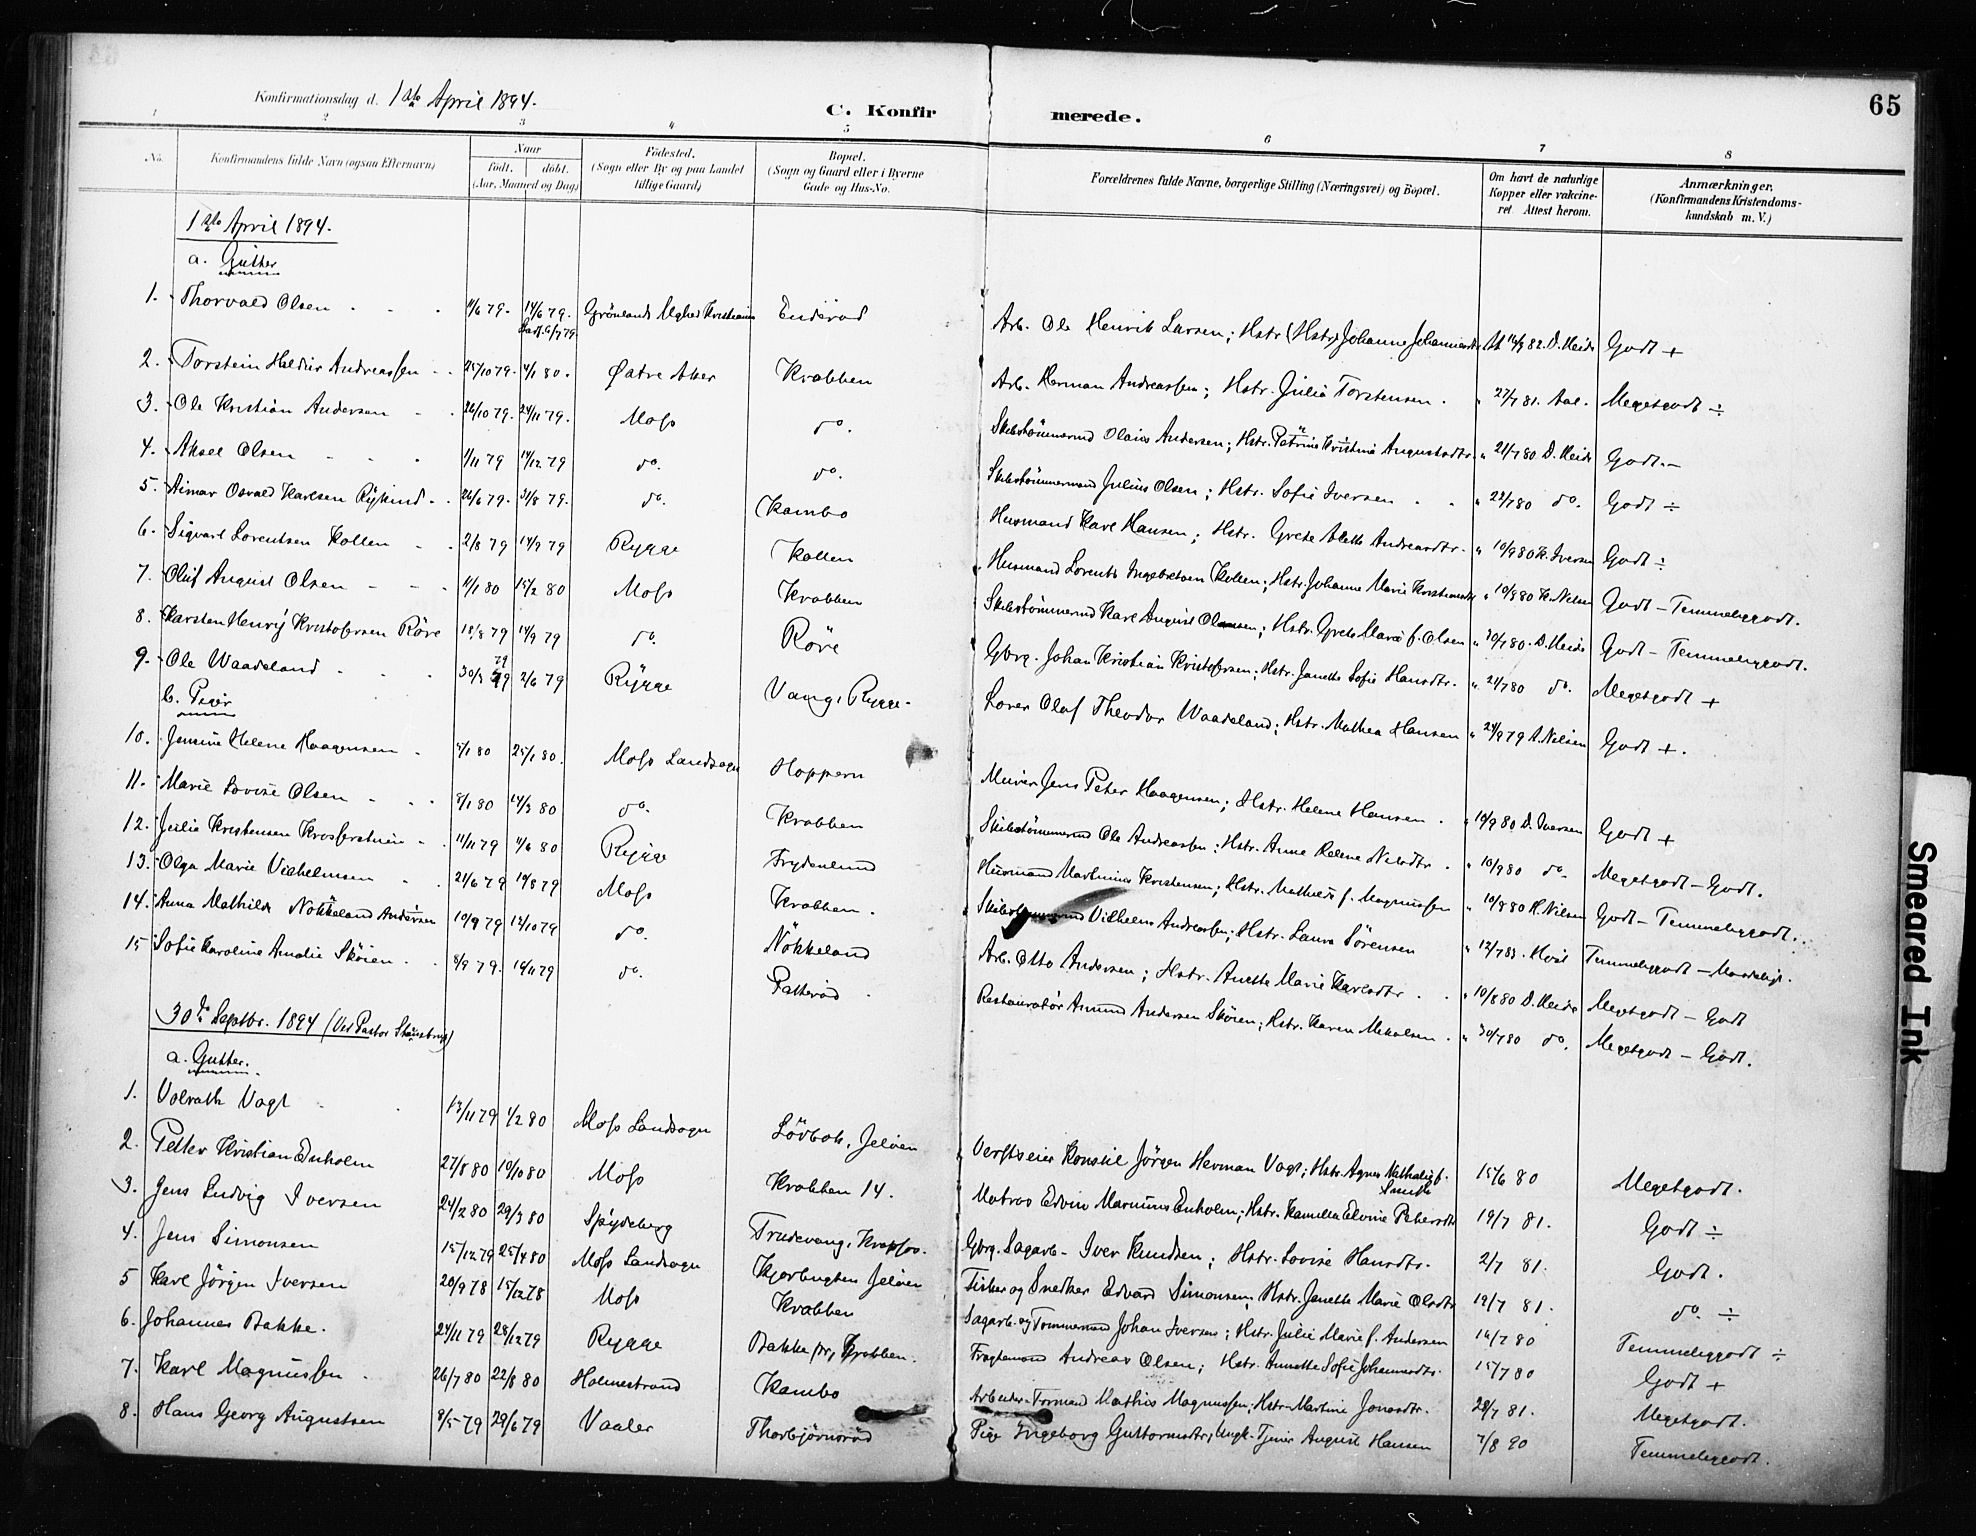 Konfirmationsdag d. 1ste April 1894.
C. Konfirmerede.
65
1 2 3 4 5 6 7 8
No. Konfirmandens fulde Navn (ogsaa Efternavn) Naar født. døbt. (Aar, Maaned og Dag) Fødested. (Sogn eller By og paa Landet tillige Gaard) Bopæl. (Sogn og Gaard eller i Byerne Gade og Hus-No. Forældrenes fulde Navne, borgerlige Stilling (Næringsvei) og Bopæl. Om havt de naturlige Kopper eller vakcineret. Attest herom. Anmærkninger. (Konfirmandens Kristendomskundskab m. V.)
1ste April 1894.
a. Gutter
1. Thorvald Olsen 14/6 79. Grønlands Kristiania Enderød Arb. Ole Henrik Larsen; Hstr. Johanne 82. D. Heide Godt +
2. Torstein Haldur Andreassen 25/10 79. 4/1 80. Østre Aker Krabben Arb. Herman Andreassen; Hstr. Julia Torstensen 27/7 81. Aal. Megetgodt ÷
3. Ole Kristian Andersen 26/10 79. 24/11 79. Moss do. Skibstømmermd Olaus Andersen; Hstr. Petrine Kristine Augustadtr. 21/7 80 D. Heide Godt. –
4. Aksel Olsen 1/11 79 14/12 79 do. do. Skibstømmermand Julius Olsen; Hstr. Sofie Iversen 22/7 80 do. Godt ÷
5. Aimar Osvald Karlsen 26/6 79. 31/8 79. do. Kambo Husmand Karl Hansen; Hstr. Grete Alette Andreasdtr. 10/9 80 K. Iversen Godt ÷
6. Sigvart Lorentsen Kollen 2/8 79 14/9 79 Rygge Kollen Husmand Lorents Ingebretsen Kollen; Hstr. Johanne Marie 10/8 80 K. Nilsen Godt – Temmeliggodt.
7. Oluf August Olsen 11/1 80 15/2 80 Moss Krabben Skibstømmermd Karl August Olausen; Hstr. Grete Marie f. Olsen 30/7 80. D. Heide Godt – Temmeliggodt.
8. Karsten Henry Kristofersen Röre 18/8 79 14/9 79 do. Röre Gbrg. Johan Kristian Kristofersen; Hstr. Janette Sofie Hansdtr. 21/7 80 do. Megetgodt +
9. Ole Waadeland 30/3 79 2/6 79 Rygge Vang, Rygge. Olaf Theodor Waadeland; Hstr. Mathea Hansen 24/9 79 A. Nilsen Godt +.
b. Piger
10. Jensine Helene Haagensen 5/1 80 25/1 80. Moss Landsogn Hoppern Murer Jens Peter Haagensen; Hstr. Helene Hansen 10/9 80 D. Iversen Godt +
11. Marie Lovise Olsen 8/1 80 14/3 80 do. Krabben Skibstømmermd Ole Andreassen; Hstr. Anne Helene Nilsdtr. 10/9 80 do. Megetgodt – Godt.
12. Julie Kristensen 11/11 79 4/6 80 Rygge Frydenlund Husmand Martinius Kristensen; Hstr. Mathilde f. Magnussen 10/8 80 K. Nilsen Godt – Temmeliggodt.
13. Olga Marie Vilhelmsen 21/6 79 10/8 79 Moss Krabben. Vilhelm Andreassen; Hstr. Laura Sørensen 12/7 83. Temmeliggodt – Maadeligt.
14. Anna Mathilde Nökkeland Andersen 10/9 79 12/10 79 do. Nökkeland Arb. Otto Andersen; Hstr. Anette Marie Karlsdtr. 10/8 80 D. Heide Megetgodt – Godt
15 Sofie Karoline Amalie Skøien 8/9 79. 16/11 79 do. Patterød Restauratør Amund Andersen Skøien; Hstr. Karen Mikalsen. 30/7 80 do. Megetgodt – Godt.
30te Septbr. 1894 (Ved Pastor
a. Gutter.
1. Volrath Vogt 13/11 79 1/2 80 Moss Landsogn Lövbak, Jeløen Verftseier Konsul Jörgen Herman Vogt; Hstr. Agnes Nathalie f. Smith 15/6 80 Megetgodt.
2. Petter Kristian Enholm 27/8 80 10/10 80 Moss Krabben 14. Matros Edvin Marinius Enholm; Hstr. Kamilla Elvine Petersdtr 19/7 81. Godt ÷
3. Jens Ludvig Iversen 24/2 80 29/3 80 Spydeberg Trudevang, Gbrg. Sagarb. Iver Knudsen; Hstr. Lovise Hansdtr. 2/7 81. Godt.
4. Jens Simonsen 15/12 79 25/4 80 Moss Landsogn Kjærbugten Jeløen Fisker og Snedker Edvard Simonsen; Hstr. Janette Marie Olsdtr 19/7 81. do. ÷
5 Karl Jörgen Iversen 20/9 78 15/12 78 Moss Krabben Sagarb. og Tømmermand Johan Iversen; Hstr. Julie Marie f. Andersen 16/7 80 Temmeliggodt ÷
6. Johannes Bakke. 24/11 79 28/12 79 Rygge Bakke pr. Krabben. Fragtemand Andreas Olsen; Hstr. Annette Sofie Johannesdtr. 15/7 80 Godt +
7. Karl Magnussen 26/7 80 22/8 80 Holmestrand Kambo Arbeider-Formand Mathias Magnussen; Hstr. Martine Jonasdtr. 28/7 81. Megetgodt.
8. Hans Georg Augustsen 9/5 79 29/6 79 Vaaler Thorbjørnsrød Pige Ingeborg Guttormsdtr, Ungk. Tjener August Hansen 7/8 90 Temmeliggodt.
Smeared Ink